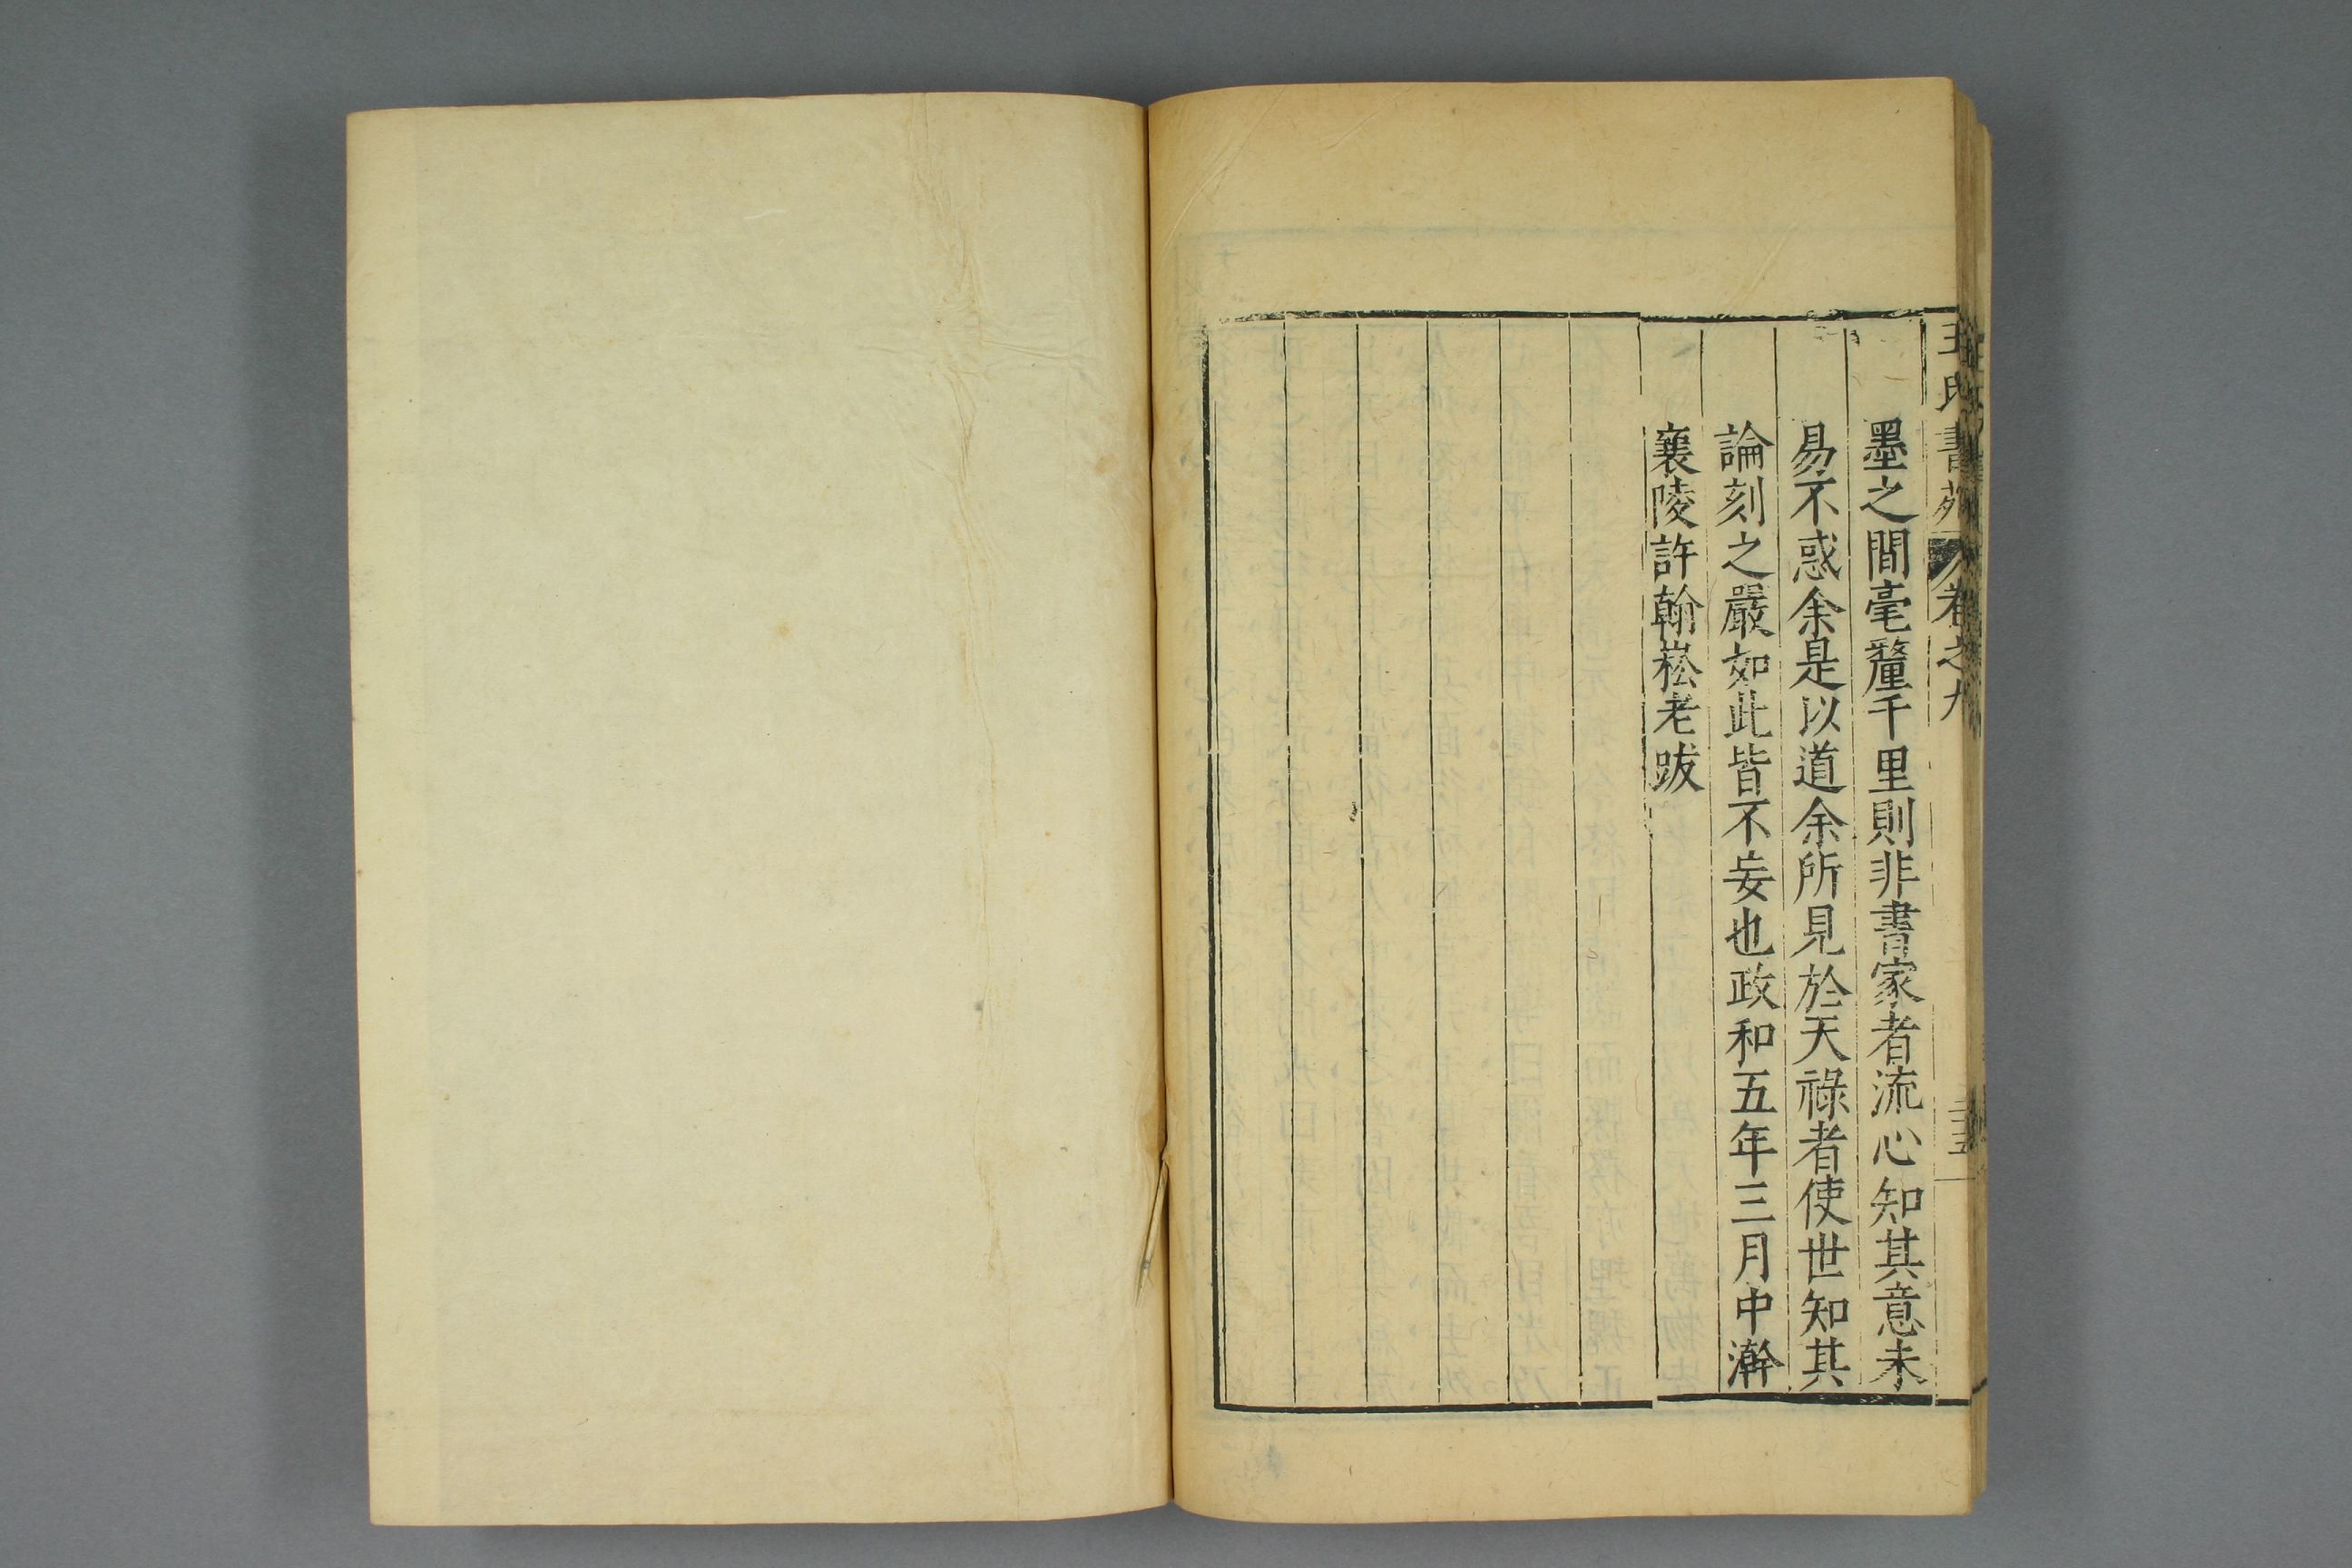 王氏書苑 卷之九
墨之間毫釐千里則非書家者流心知其意未
易不惑余是以道余所見於天祿者使世知其
論刻之嚴如此皆不妄也政和五年三月中澣
襄陵許翰崧老跋